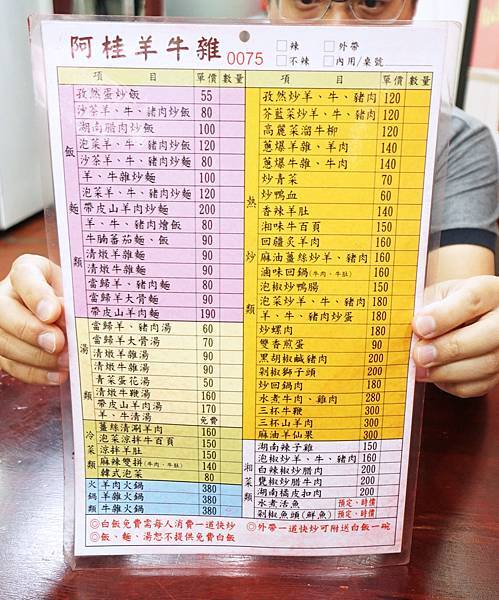 阿桂羊牛雜 0075
□辣 □外帶
□不辣 □內用/桌號
項 目 單價 數量
飯 麵 類
孜然蛋炒飯 55
沙茶羊、牛、豬肉炒飯 80
湖南腊肉炒飯 100
泡菜羊、牛、豬肉炒飯 120
沙茶羊、牛、豬肉炒麵 80
羊、牛雜炒麵 100
泡菜羊、牛、豬肉炒麵 120
帶皮山羊肉炒麵 200
羊、牛、豬肉燴飯 80
牛腩蕃茄麵、飯 90
清燉羊雜麵 90
清燉牛雜麵 90
當歸羊、豬肉麵 80
當歸羊大骨麵 90
帶皮山羊肉麵 190
湯 類
當歸羊、豬肉湯 60
當歸羊大骨湯 70
清燉羊雜湯 90
清燉牛雜湯 90
青菜蛋花湯 50
清燉牛鞭湯 160
帶皮山羊肉湯 170
羊、牛清湯 免費
冷菜類
薑絲清涮羊肉 160
泡菜涼拌牛百頁 150
涼拌羊肚 150
麻辣雙拼(牛肉、牛肚) 140
韓式泡菜 80
火鍋類
羊肉火鍋 380
羊雜火鍋 380
牛雜火鍋 380
項 目 單價 數量
熱 炒 類
孜然炒羊、牛、豬肉 120
芥藍菜炒羊、牛、豬肉 120
高麗菜溜牛柳 120
蔥爆羊雜、羊肉 140
蔥爆牛雜、牛肉 140
炒青菜 70
炒鴨血 60
香辣羊肚 140
湘味牛百頁 150
回疆炙羊肉 160
麻油薑絲炒羊、豬肉 160
滷味回鍋(牛肉、牛肚) 160
泡椒炒鴨腸 150
泡菜炒羊、牛、豬肉 180
羊、牛、豬肉炒蛋 180
炒螺肉 180
雙香煎蛋 90
黑胡椒鹹豬肉 200
剁椒獅子頭 200
炒回鍋肉 180
水煮牛肉、雞肉 280
三杯牛鞭 300
三杯山羊肉 300
麻油羊仙果 300
湘菜類
湖南辣子雞 150
泡椒炒羊、牛、豬肉 160
白辣椒炒腊肉 200
甕椒炒腊牛肉 200
湖南橘皮扣肉 200
水煮活魚 預定、時價
剁椒魚頭(鮮魚) 預定、時價
◎白飯免費需每人消費一道快炒
◎外帶一道快炒可附送白飯一碗
◎飯、麵、湯恕不提供免費白飯